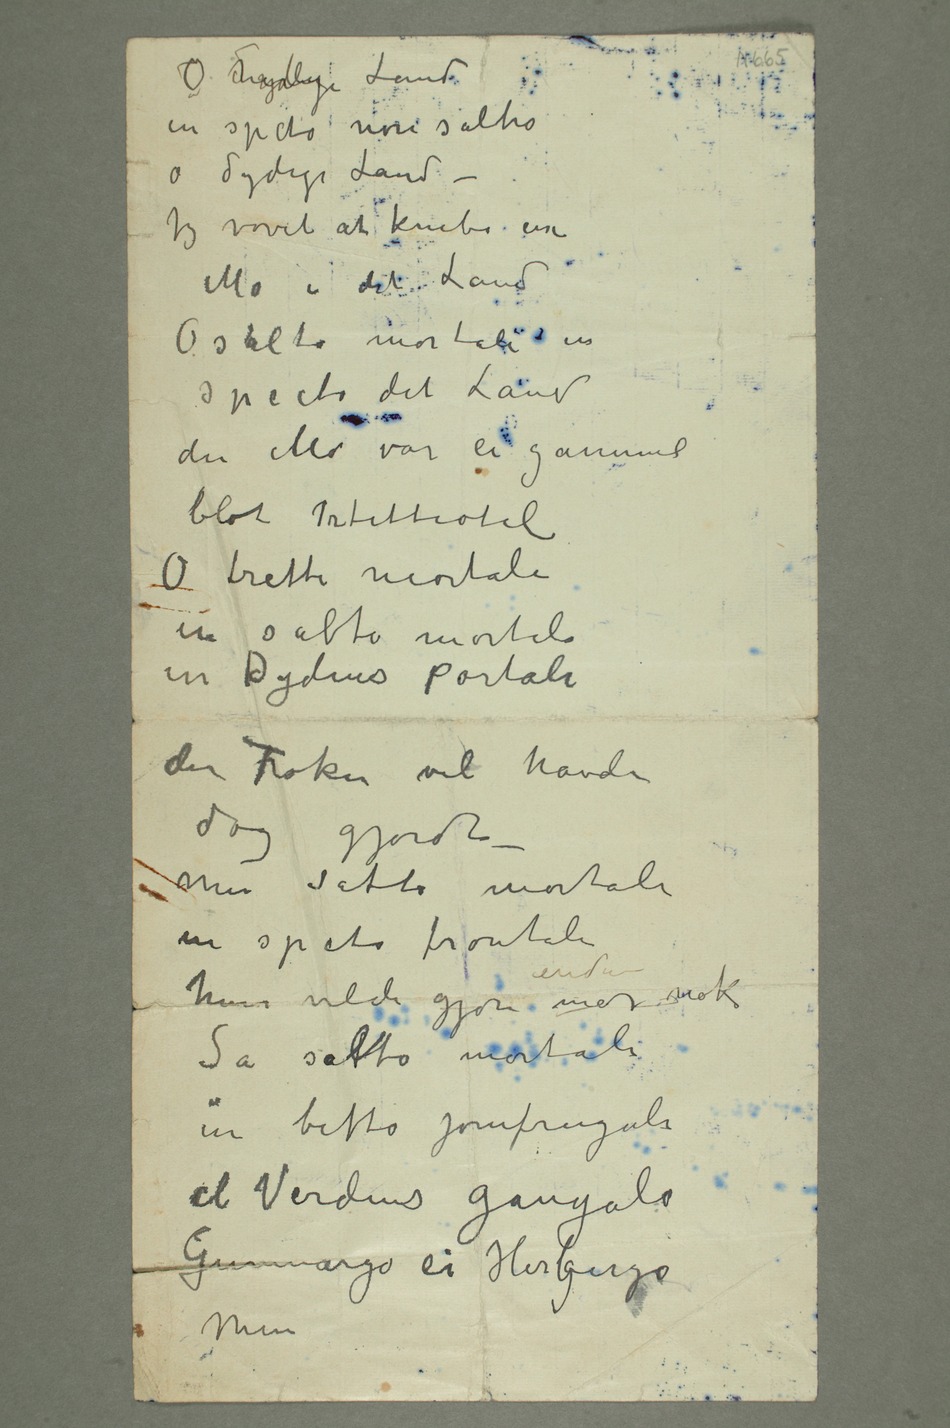 N 665
O Land
in specto non salto
o dydige Land –
Jeg vovet at knibe en
Mo i det Land
O salto mortale in
specto det Land
den Mo var ei gammel
blot
O trette mortale
in salto mortale
in Dydens portale
den Froken vel havde
dog gjordt –
men satto mortale
in specto frontale
hun vilde gjøre mer nok
endu
Så salto mortale
in betto jomfrugale
el Verdens gangalo
ei Herbergo
Men